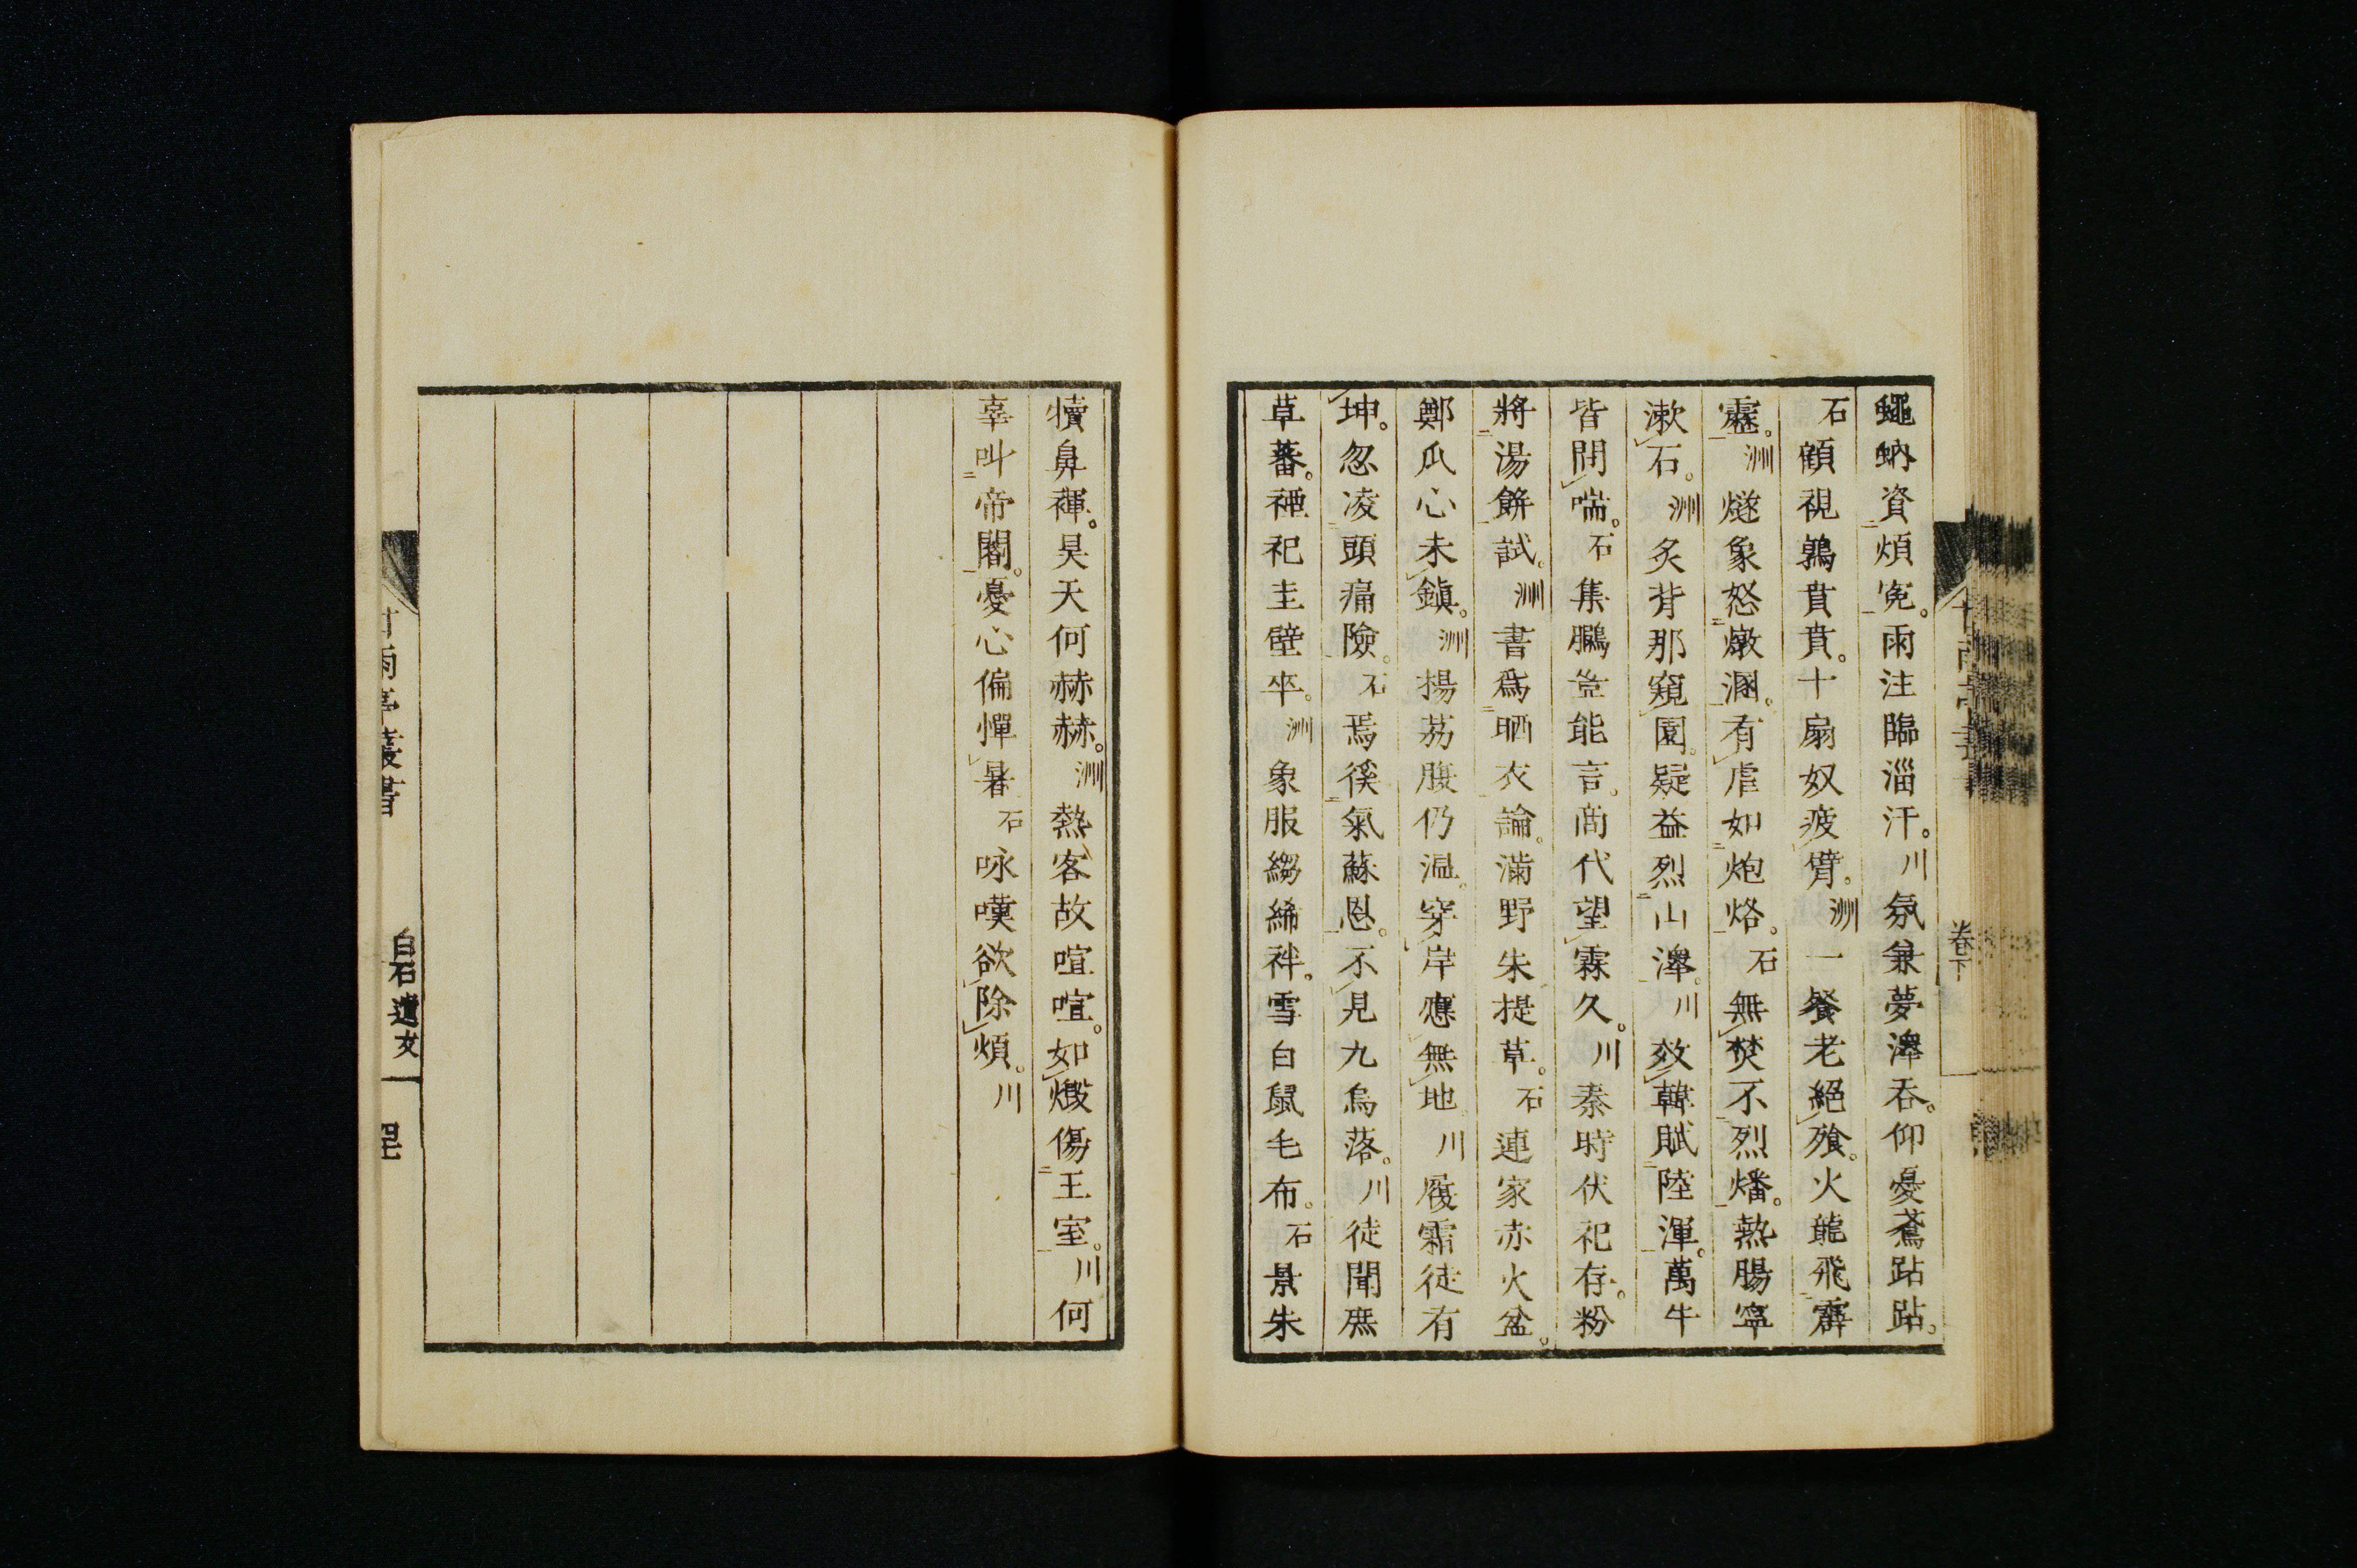 蠅蚋資煩寃。雨注臨淄汗。川氛兼夢澤呑。仰憂鳶跕跕。
石顧視鶉賁賁。十扇奴疲臂。洲一餐老絕飱。火龍飛霹
靂。洲燧象怒燉溷。有虐如炮烙。石無焚不烈燔。熱腸寧
漱石。洲炙背那窺園。疑益烈山澤。川效韓賦陸渾。萬牛
皆閉喘。石集鵩豈能言。商代望霖久。川秦時伏祀存。粉
將湯餅試。洲書爲晒衣論。滿野朱提草。石連家赤火盆。
鄭瓜心未鎭。洲揚荔腹仍溫。穿岸應無地。川履霜徒有
坤。忽凌頭痛險。石焉徯氣蘇恩。不見九烏落。川徒聞庶
草蕃。禋祀圭璧卒。洲象服縐絺袢。雪白鼠毛布。石景朱
犢鼻褌。昊天何赫赫。洲熱客故喧喧。如燬傷王室。川何
辜叫帝閽。憂心偏憚暑。石咏嘆欲除煩。川
卷下
甘雨亭叢書
白石遺文